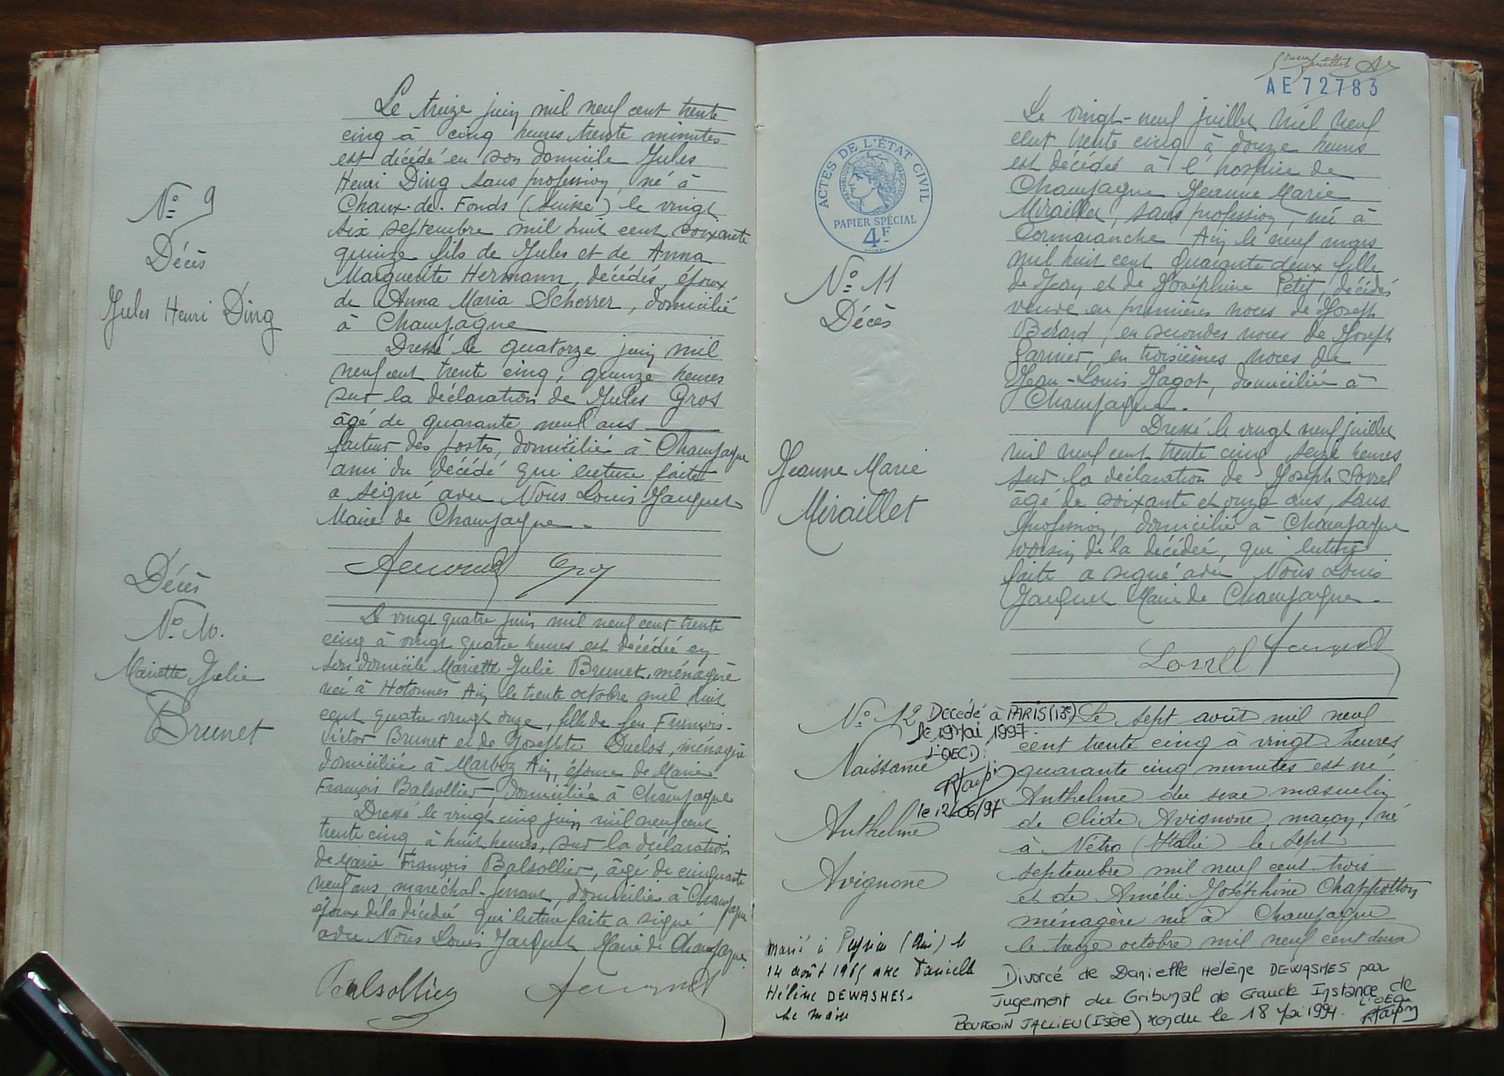 Nº 9
Décès
Jules Henri Ding
Le treize juin mil neuf cent trente
cinq à cinq heures trente minutes
est décédé en son domicile Jules
Henri Ding sans profession, né à
Chaux-de-Fonds (Suisse) le vingt
six septembre mil huit cent soixante
quinze fils de Jules et de Anna
Marguerite Hermann, décédés, époux
de Anna Maria Scherrer, domicilié
à Champagne
Dressé le quatorze juin mil
neuf cent trente cinq, quinze heures
sur la déclaration de Jules Gros
âgé de quarante neuf ans
facteur des postes, domicilié à Champagne
ami du décédé qui lecture faite
a signé avec Nous Louis Jacquet
Maire de Champagne.
Gros
Décès
Nº 10.
Mariette Julie
Brunet
Le vingt quatre juin mil neuf cent trente
cinq à vingt quatre heures est décédée en
son domicile Mariette Julie Brunet, ménagère
née à Hotonnes Ain le trente octobre mil huit
cent quatre vingt onze, fille de feu François-
Victor Brunet et de Josephte Duclos, ménagère
domiciliée à Marboz Ain, épouse de Marie
François Balsollier, domiciliée à Champagne
Dressé le vingt cinq juin mil neuf cent
trente cinq à huit heures, sur la déclaration
de Marie François Balsollier, âgé de cinquante
neuf ans maréchal-ferrant, domicilié à Champagne
époux de la décédée qui lecture faite a signé
avec Nous Louis Jacquet Maire de Champagne.
Balsollier
AE 72783
ACTES DE L'ÉTAT CIVIL
PAPIER SPÉCIAL
4F
Nº 11
Décès
Jeanne Marie
Miraillet
Le vingt-neuf juillet mil neuf
cent trente cinq à douze heures
est décédée à l'hospice de
Champagne Jeanne Marie
Miraillet, sans profession, née à
Cormaranche Ain le neuf mars
mil huit cent quarante deux fille
de Jean et de Joséphine Petit, décédés
veuve en premières noces de Joseph
Bérard, en secondes noces de Joseph
en troisièmes noces de
Jean-Louis Jagot, domiciliée à
Champagne.
Dressé le vingt neuf juillet
mil neuf cent trente cinq, seize heures
sur la déclaration de Joseph
âgé de soixante et onze ans, sans
profession, domicilié à Champagne
voisin de la décédée, qui lecture
faite a signé avec Nous Louis
Jacquet Maire de Champagne.
Nº 12
Naissance
Anthelme
Avignone
Décédé à PARIS (13e)
le 19 Mai 1997.
L'OEC.
le 12/06/97
Le sept août mil neuf
cent trente cinq à vingt heures
quarante cinq minutes est né
Anthelme du sexe masculin
de Clide Avignone, maçon, né
à Netro (Italie) le sept
septembre mil neuf cent trois
et de Amélie Joséphine Chappotton
ménagère née à Champagne
le treize octobre mil neuf cent deux
Marié à Peyrieu (Ain) le
14 août 1965 avec Danielle
Hélène DEWASMES.
Le Maire
Divorcé de Danielle Hélène DEWASMES par
Jugement du Tribunal de Grande Instance de
BOURGOIN JALLIEU (Isère) rendu le 18 Mai 1994.
L'OEC